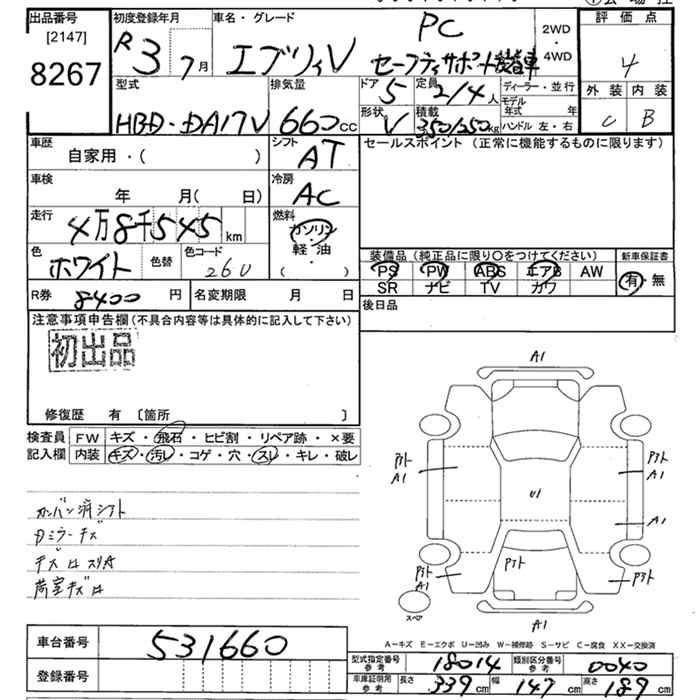 出品番号 [2147] 8267
初度登録年月 R3 7月
車名・グレード エブリィV PC
セーフティサポート装着車
2WD・4WD
評価点 4
外装 C 内装 B
型式 HBD-DA17V
排気量 660cc
ドア 5 定員 2/4人
形状 V 積載 350/250kg
ディーラー・並行
モデル年式 年
ハンドル 左・右
車歴 自家用・( )
シフト AT
車検 年 月( 日)
冷房 AC
走行 4万8千545km
燃料 ガソリン・軽・油 ( )
色 ホワイト 色替
色コード 26U
R券 8400円
名変期限 月 日
セールスポイント (正常に機能するものに限ります)
装備品 (純正品に限り○をつけてください)
PS PW ABS エアB AW
SR ナビ TV カワ
新車保証書 有・無
後日品
注意事項申告欄 (不具合内容等は具体的に記入して下さい)
初出品
修復歴 有 〔箇所 〕
検査員記入欄
FW キズ・飛石・ヒビ割・リペア跡・×要
内装 キズ・汚レ・コゲ・穴・スレ・キレ・破レ
カンバン済シフト
Dミラーキズ
荷室キズ
A1
Pスト A1
Pスト A1
U1
A1
Pスト
Pスト A1
Pスト
スペア
A1
A-キズ E-エクボ U-凹み W-補修跡 S-サビ C-腐食 XX-交換済
車台番号 531660
登録番号
型式指定番号 参考 18014
類別区分番号 参考 0040
車庫証明用 参考 長さ 339cm 幅 147cm 高さ 189cm